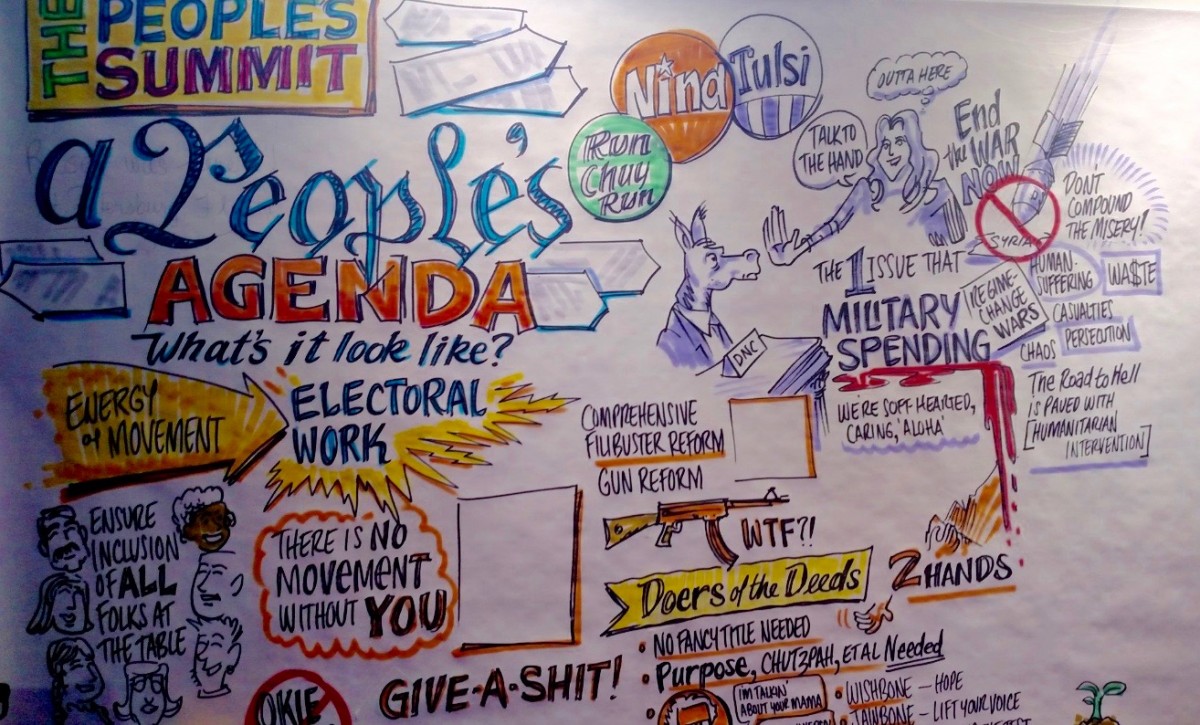 THE
PEOPLE'S
SUMMIT
a People's
AGENDA
What's it look like?
Nina
Tulsi
Run
Chuy
Run
OUTTA HERE
TALK TO
THE HAND
End
the WAR
NOW
SYRIA
DON'T
COMPOUND
THE MISERY!
DNC
THE 1 ISSUE THAT
MILITARY
SPENDING
REGIME-
CHANGE
WARS
HUMAN
SUFFERING
WA$TE
CASUALTIES
PERSECUTION
CHAOS
The Road to Hell
IS PAVED WITH
[HUMANITARIAN
INTERVENTION]
WE'RE SOFT HEARTED,
CARING, 'ALOHA'
ENERGY
of MOVEMENT
ELECTORAL
WORK
ENSURE
INCLUSION
OF ALL
FOLKS AT
THE TABLE
THERE IS NO
MOVEMENT
WITHOUT YOU
COMPREHENSIVE
FILIBUSTER REFORM
GUN REFORM
WTF?!
Doers of the Deeds
2 HANDS
• NO FANCY TITLE NEEDED
• Purpose, CHUTZPAH, ET AL Needed
I'M TALKIN'
ABOUT YOUR MAMA
• WISHBONE – HOPE
• JAINBONE – LIFT YOUR VOICE
OKIE
GIVE-A-SHIT!